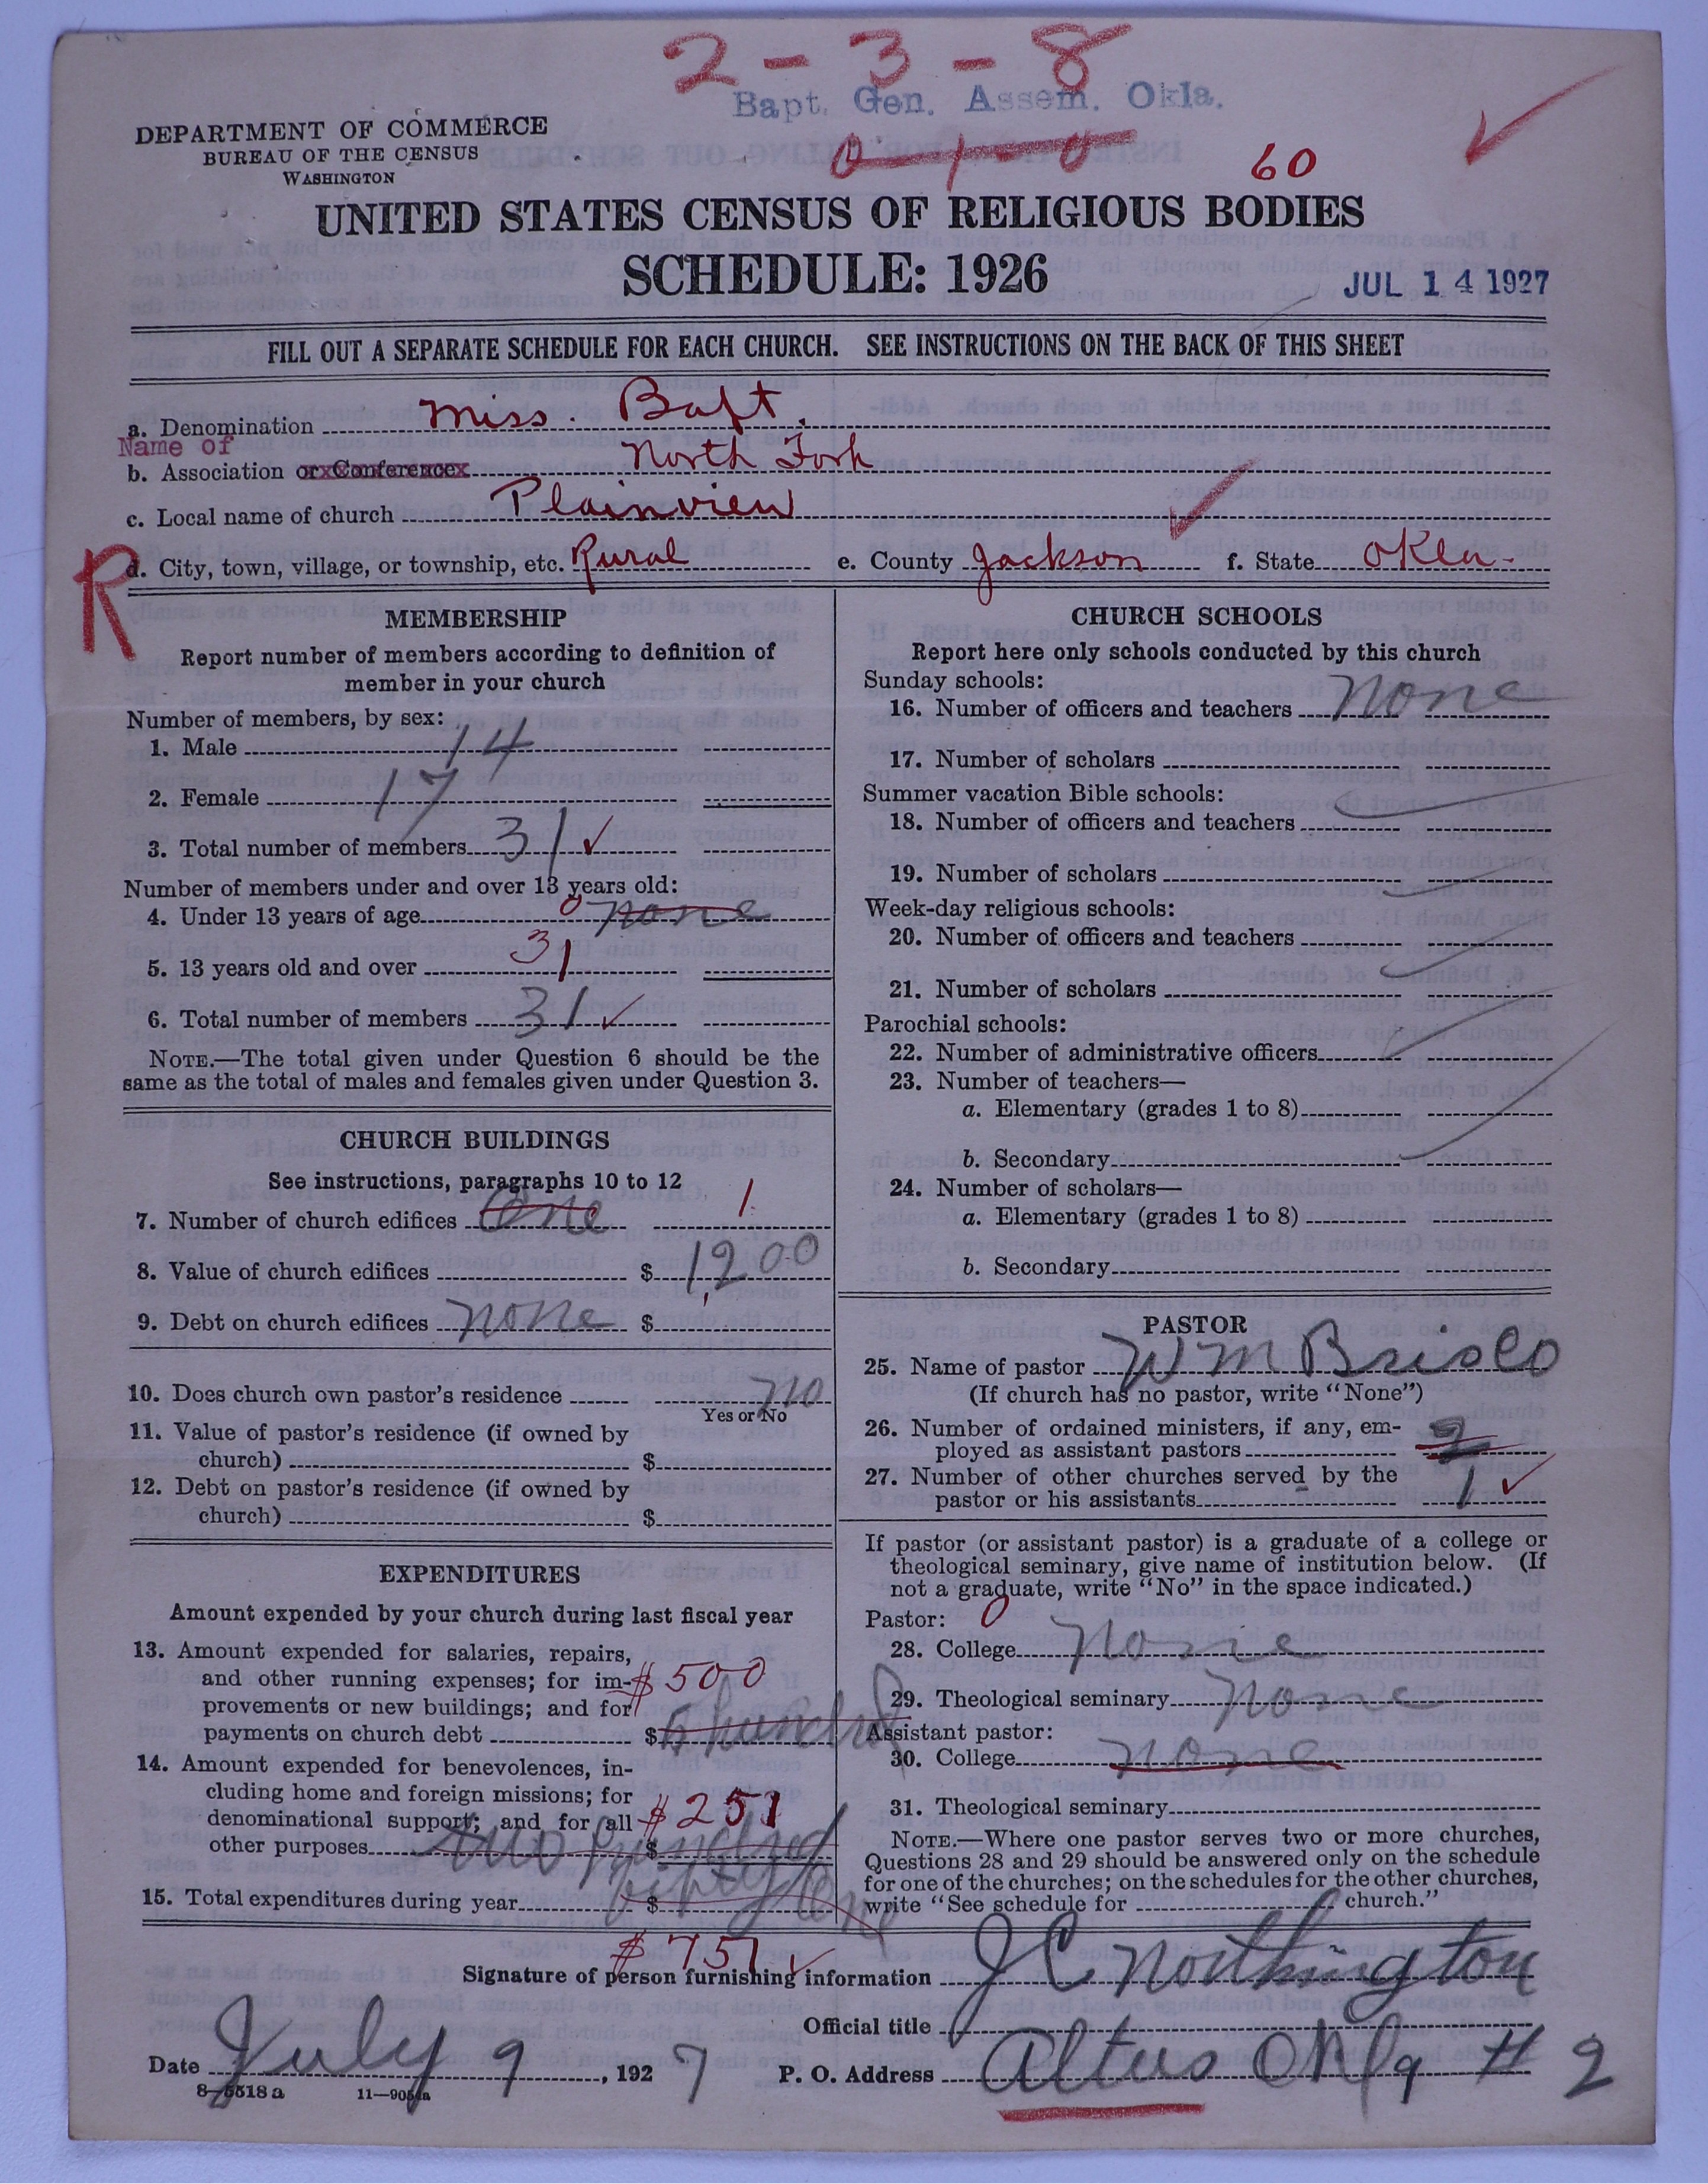 2 - 3 - 8
Bapt. Gen. Assem. Okla.
DEPARTMENT OF COMMERCE
BUREAU OF THE CENSUS
WASHINGTON
0 - 1 - 0
60
UNITED STATES CENSUS OF RELIGIOUS BODIES
SCHEDULE: 1926
JUL 14 1927
FILL OUT A SEPARATE SCHEDULE FOR EACH CHURCH. SEE INSTRUCTIONS ON THE BACK OF THIS SHEET
a. Denomination Miss. Bapt.
Name of
b. Association or Conference North Fork
c. Local name of church Plainview
R
d. City, town, village, or township, etc. Rural e. County Jackson f. State Okla.
MEMBERSHIP
Report number of members according to definition of
member in your church
Number of members, by sex:
1. Male 14
2. Female 17
3. Total number of members 31 ✓
Number of members under and over 13 years old:
4. Under 13 years of age 0 none
5. 13 years old and over 31
6. Total number of members 31 ✓
NOTE.—The total given under Question 6 should be the
same as the total of males and females given under Question 3.
CHURCH BUILDINGS
See instructions, paragraphs 10 to 12
7. Number of church edifices One 1
8. Value of church edifices $ 1,200
9. Debt on church edifices none $
10. Does church own pastor's residence no
Yes or No
11. Value of pastor's residence (if owned by
church) $
12. Debt on pastor's residence (if owned by
church) $
EXPENDITURES
Amount expended by your church during last fiscal year
13. Amount expended for salaries, repairs,
and other running expenses; for im-
provements or new buildings; and for
payments on church debt $ 5 hundred
$500
14. Amount expended for benevolences, in-
cluding home and foreign missions; for
denominational support; and for all
other purposes $ two hundred
fifty one
$251
15. Total expenditures during year $
$751 ✓
CHURCH SCHOOLS
Report here only schools conducted by this church
Sunday schools:
16. Number of officers and teachers none
17. Number of scholars
Summer vacation Bible schools:
18. Number of officers and teachers
19. Number of scholars
Week-day religious schools:
20. Number of officers and teachers
21. Number of scholars
Parochial schools:
22. Number of administrative officers
23. Number of teachers—
a. Elementary (grades 1 to 8)
b. Secondary
24. Number of scholars—
a. Elementary (grades 1 to 8)
b. Secondary
PASTOR
25. Name of pastor W M Brisco
(If church has no pastor, write "None")
26. Number of ordained ministers, if any, em-
ployed as assistant pastors 2
27. Number of other churches served by the
pastor or his assistants 1 ✓
If pastor (or assistant pastor) is a graduate of a college or
theological seminary, give name of institution below. (If
not a graduate, write "No" in the space indicated.)
Pastor: 0
28. College none
29. Theological seminary none
Assistant pastor:
30. College none
31. Theological seminary
NOTE.—Where one pastor serves two or more churches,
Questions 28 and 29 should be answered only on the schedule
for one of the churches; on the schedules for the other churches,
write "See schedule for church."
Signature of person furnishing information J C Northington
Official title
Date July 9, 1927 P. O. Address Altus Okla # 2
8—5518 a 11—9051a